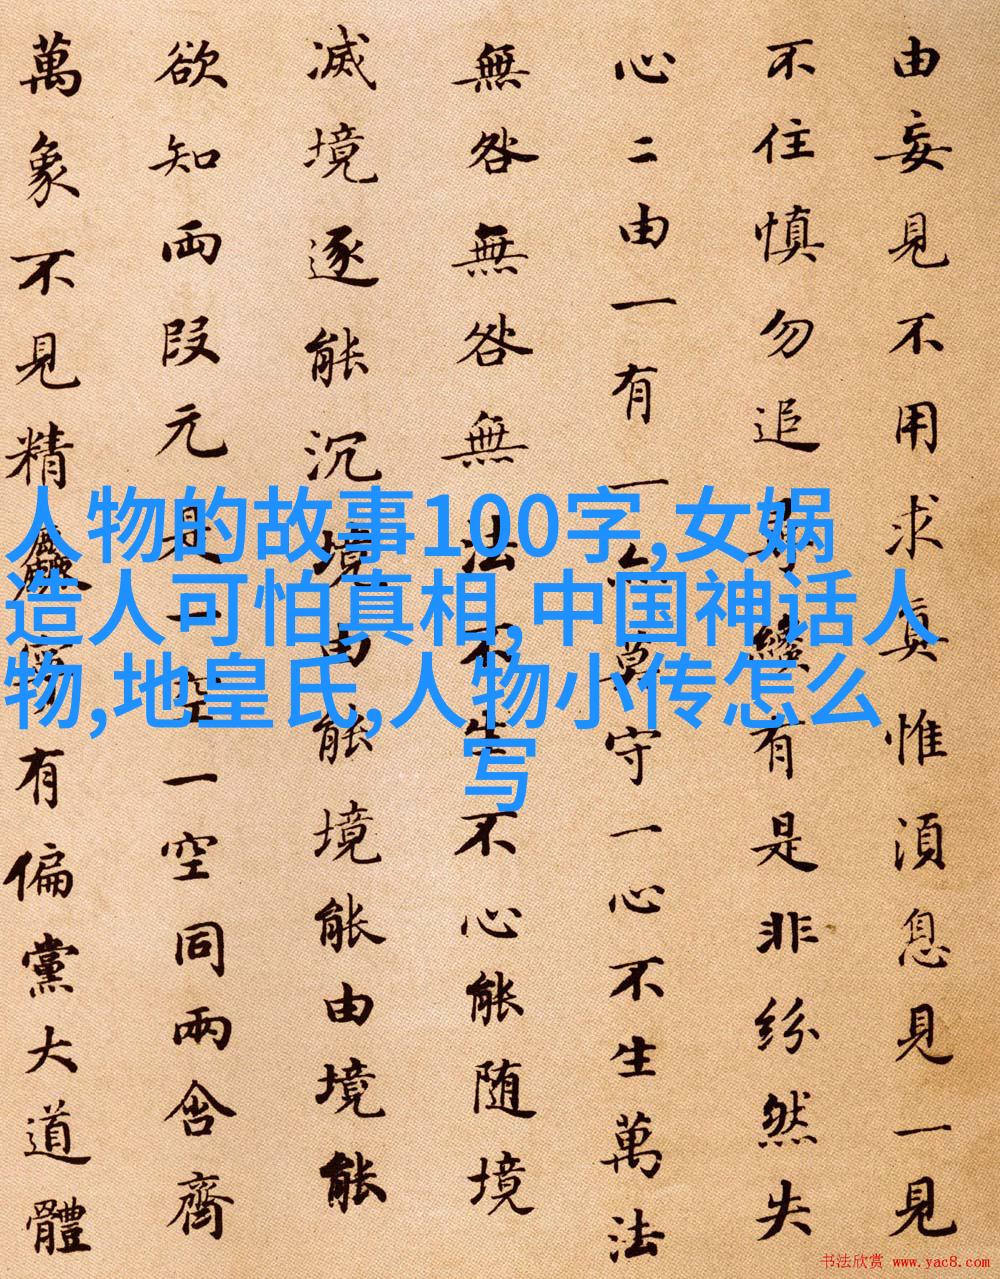 由妄見不用求真惟湏息見一見
不住慎勿追纔有是非紛然失
心二由一有一亦莫守一心不生萬法
無咎無咎無法不生不心能随境
滅境逐能沉境由能境能由境能
欲知两段元是一空一空同兩含齊
萬象不見精麤寧有偏黨大道體
人物的故事100字,女娲
造人可怕真相,中国神话人
物,地皇氏,人物小传怎么
写
书法欣赏 www.yac8.com